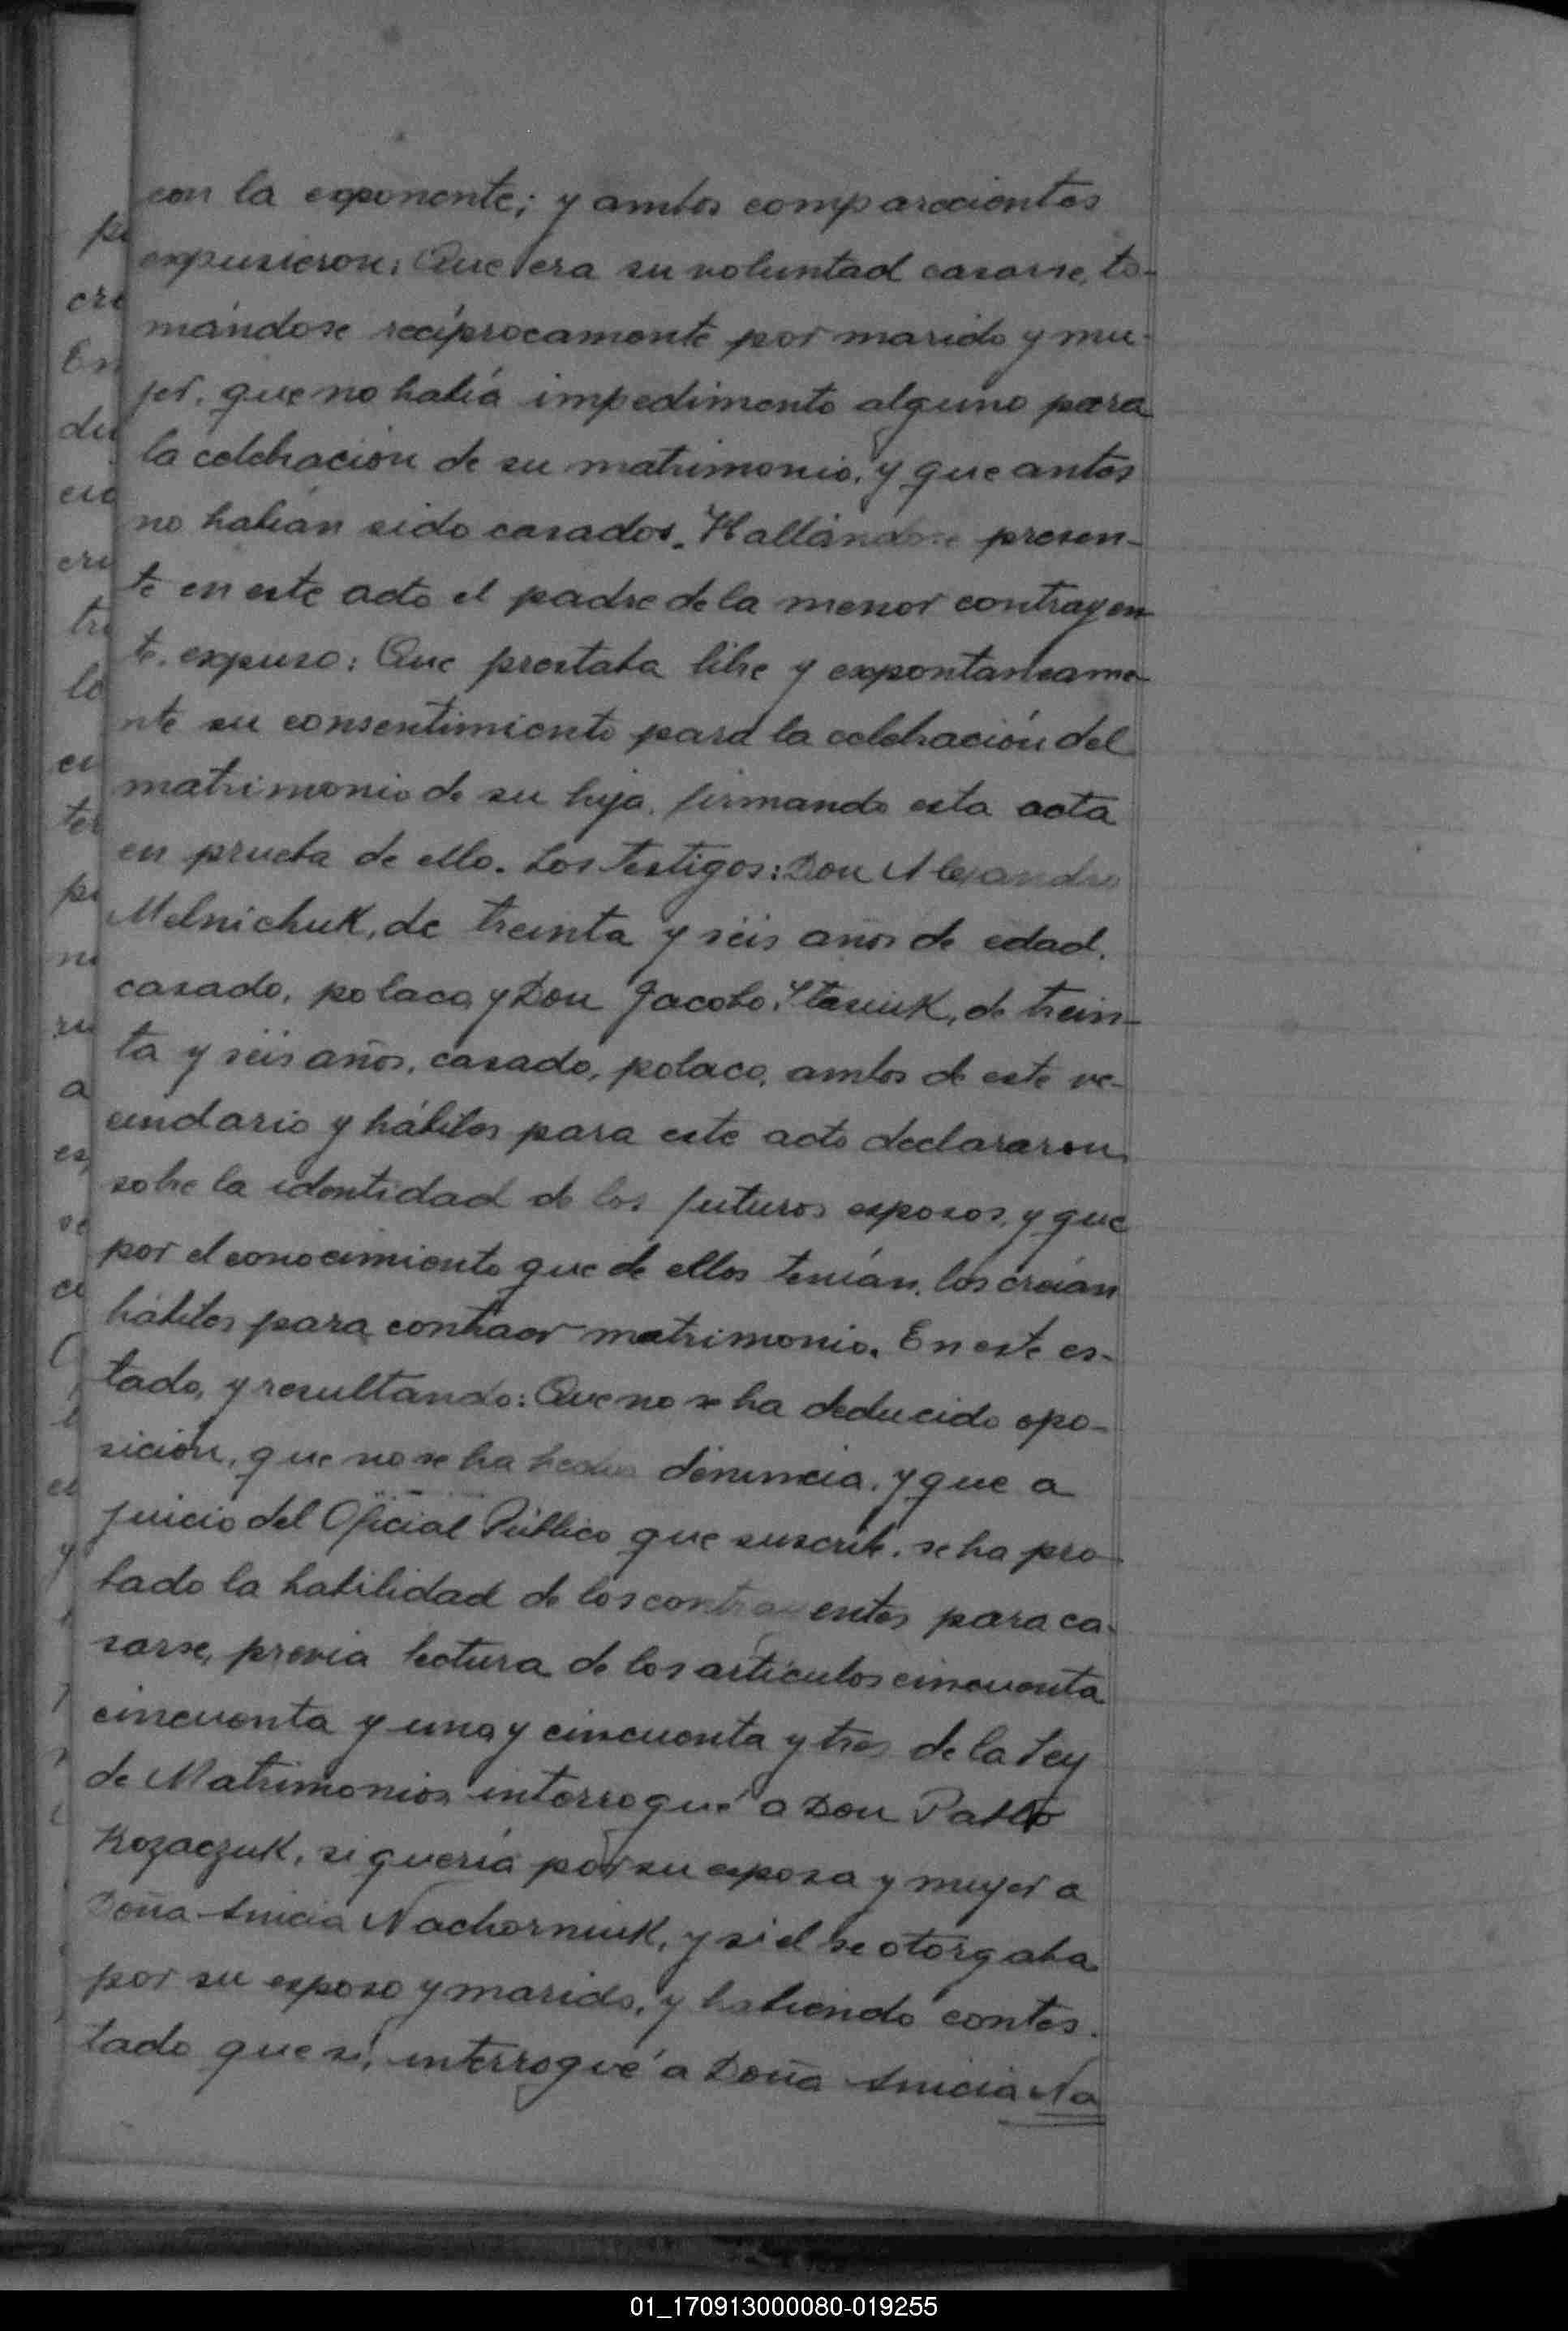 con la exponente; y ambos comparecientes
expusieron: Que era su voluntad casarse, to-
mándose recíprocamente por marido y mu-
jer, que no había impedimento alguno para
la celebración de su matrimonio, y que antes
no habían sido casados. Hallándose presen-
te en este acto el padre de la menor contrayen
te, expuso: Que prestaba libre y expontaneame-
nte su consentimiento para la celebración del
matrimonio de su hija, firmando esta acta
en prueba de ello. Los Testigos: Don Alejandro
Melnichuk, de treinta y seis años de edad,
casado, polaco y Don Jacobo Stasiuk, de trein-
ta y seis años, casado, polaco, ambos de este ve-
cindario y hábiles para este acto declararon
sobre la identidad de los futuros esposos, y que
por el conocimiento que de ellos tenían, los creían
hábiles para contraer matrimonio. En este es-
tado, y resultando: Que no se ha deducido opo-
sición, que no se ha hecho denuncia, y que a
juicio del Oficial Público que suscribe, se ha pro-
bado la habilidad de los contrayentes para ca-
sarse, previa lectura de los artículos cincuenta
cincuenta y uno y cincuenta y tres de la Ley
de Matrimonios interrogué a Don Pablo
Kozaczuk, si quería por su esposa y mujer a
Doña Anicia Nachorniuk, y si el se otorgaba
por su esposo y marido, y habiendo contes-
tado que sí, interrogué a Doña Anicia Na
01_170913000080-019255